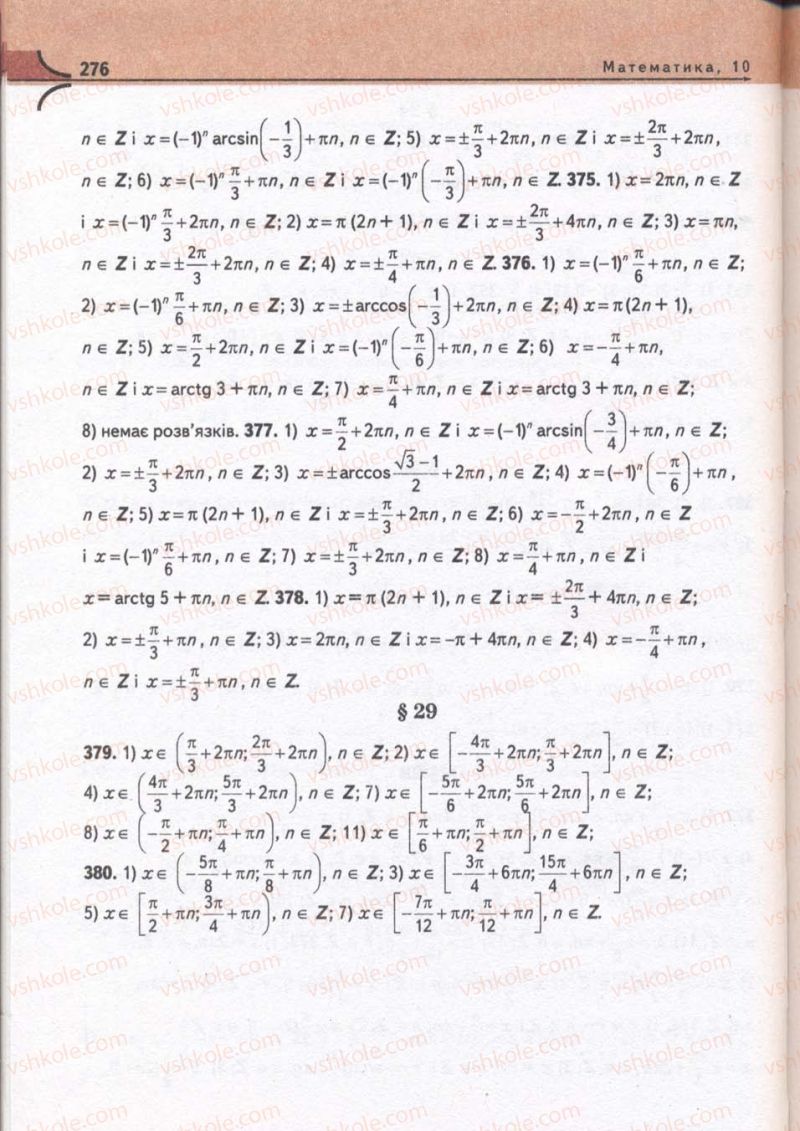 276
Математика, 10
n ∈ Z і x = (−1)ⁿ arcsin(−1/3) + πn, n ∈ Z; 5) x = ±π/3 + 2πn, n ∈ Z і x = ±2π/3 + 2πn,
n ∈ Z; 6) x = (−1)ⁿ π/3 + πn, n ∈ Z і x = (−1)ⁿ(−π/3) + πn, n ∈ Z. 375. 1) x = 2πn, n ∈ Z
і x = (−1)ⁿ π/3 + 2πn, n ∈ Z; 2) x = π (2n + 1), n ∈ Z і x = ±2π/3 + 4πn, n ∈ Z; 3) x = πn,
n ∈ Z і x = ±2π/3 + 2πn, n ∈ Z; 4) x = ±π/4 + πn, n ∈ Z. 376. 1) x = (−1)ⁿ π/6 + πn, n ∈ Z;
2) x = (−1)ⁿ π/6 + πn, n ∈ Z; 3) x = ±arccos(−1/3) + 2πn, n ∈ Z; 4) x = π(2n + 1),
n ∈ Z; 5) x = π/2 + 2πn, n ∈ Z і x = (−1)ⁿ(−π/6) + πn, n ∈ Z; 6) x = −π/4 + πn,
n ∈ Z і x = arctg 3 + πn, n ∈ Z; 7) x = π/4 + πn, n ∈ Z і x = arctg 3 + πn, n ∈ Z;
8) немає розв’язків. 377. 1) x = π/2 + 2πn, n ∈ Z і x = (−1)ⁿ arcsin(−3/4) + πn, n ∈ Z;
2) x = ±π/3 + 2πn, n ∈ Z; 3) x = ±arccos (√3−1)/2 + 2πn, n ∈ Z; 4) x = (−1)ⁿ(−π/6) + πn,
n ∈ Z; 5) x = π (2n + 1), n ∈ Z і x = ±π/3 + 2πn, n ∈ Z; 6) x = −π/2 + 2πn, n ∈ Z
і x = (−1)ⁿ π/6 + πn, n ∈ Z; 7) x = ±π/3 + 2πn, n ∈ Z; 8) x = π/4 + πn, n ∈ Z і
x = arctg 5 + πn, n ∈ Z. 378. 1) x = π (2n + 1), n ∈ Z і x = ±2π/3 + 4πn, n ∈ Z;
2) x = ±π/3 + πn, n ∈ Z; 3) x = 2πn, n ∈ Z і x = −π + 4πn, n ∈ Z; 4) x = −π/4 + πn,
n ∈ Z і x = ±π/3 + πn, n ∈ Z.
§ 29
379. 1) x ∈ (π/3 + 2πn; 2π/3 + 2πn), n ∈ Z; 2) x ∈ [−4π/3 + 2πn; π/3 + 2πn], n ∈ Z;
4) x ∈ (4π/3 + 2πn; 5π/3 + 2πn), n ∈ Z; 7) x ∈ [−5π/6 + 2πn; 5π/6 + 2πn], n ∈ Z;
8) x ∈ (−π/2 + πn; π/4 + πn), n ∈ Z; 11) x ∈ [π/6 + πn; π/2 + πn], n ∈ Z;
380. 1) x ∈ (−5π/8 + πn; π/8 + πn), n ∈ Z; 3) x ∈ [−3π/4 + 6πn; 15π/4 + 6πn], n ∈ Z;
5) x ∈ [π/2 + πn; 3π/4 + πn), n ∈ Z; 7) x ∈ [−7π/12 + πn; π/12 + πn], n ∈ Z.